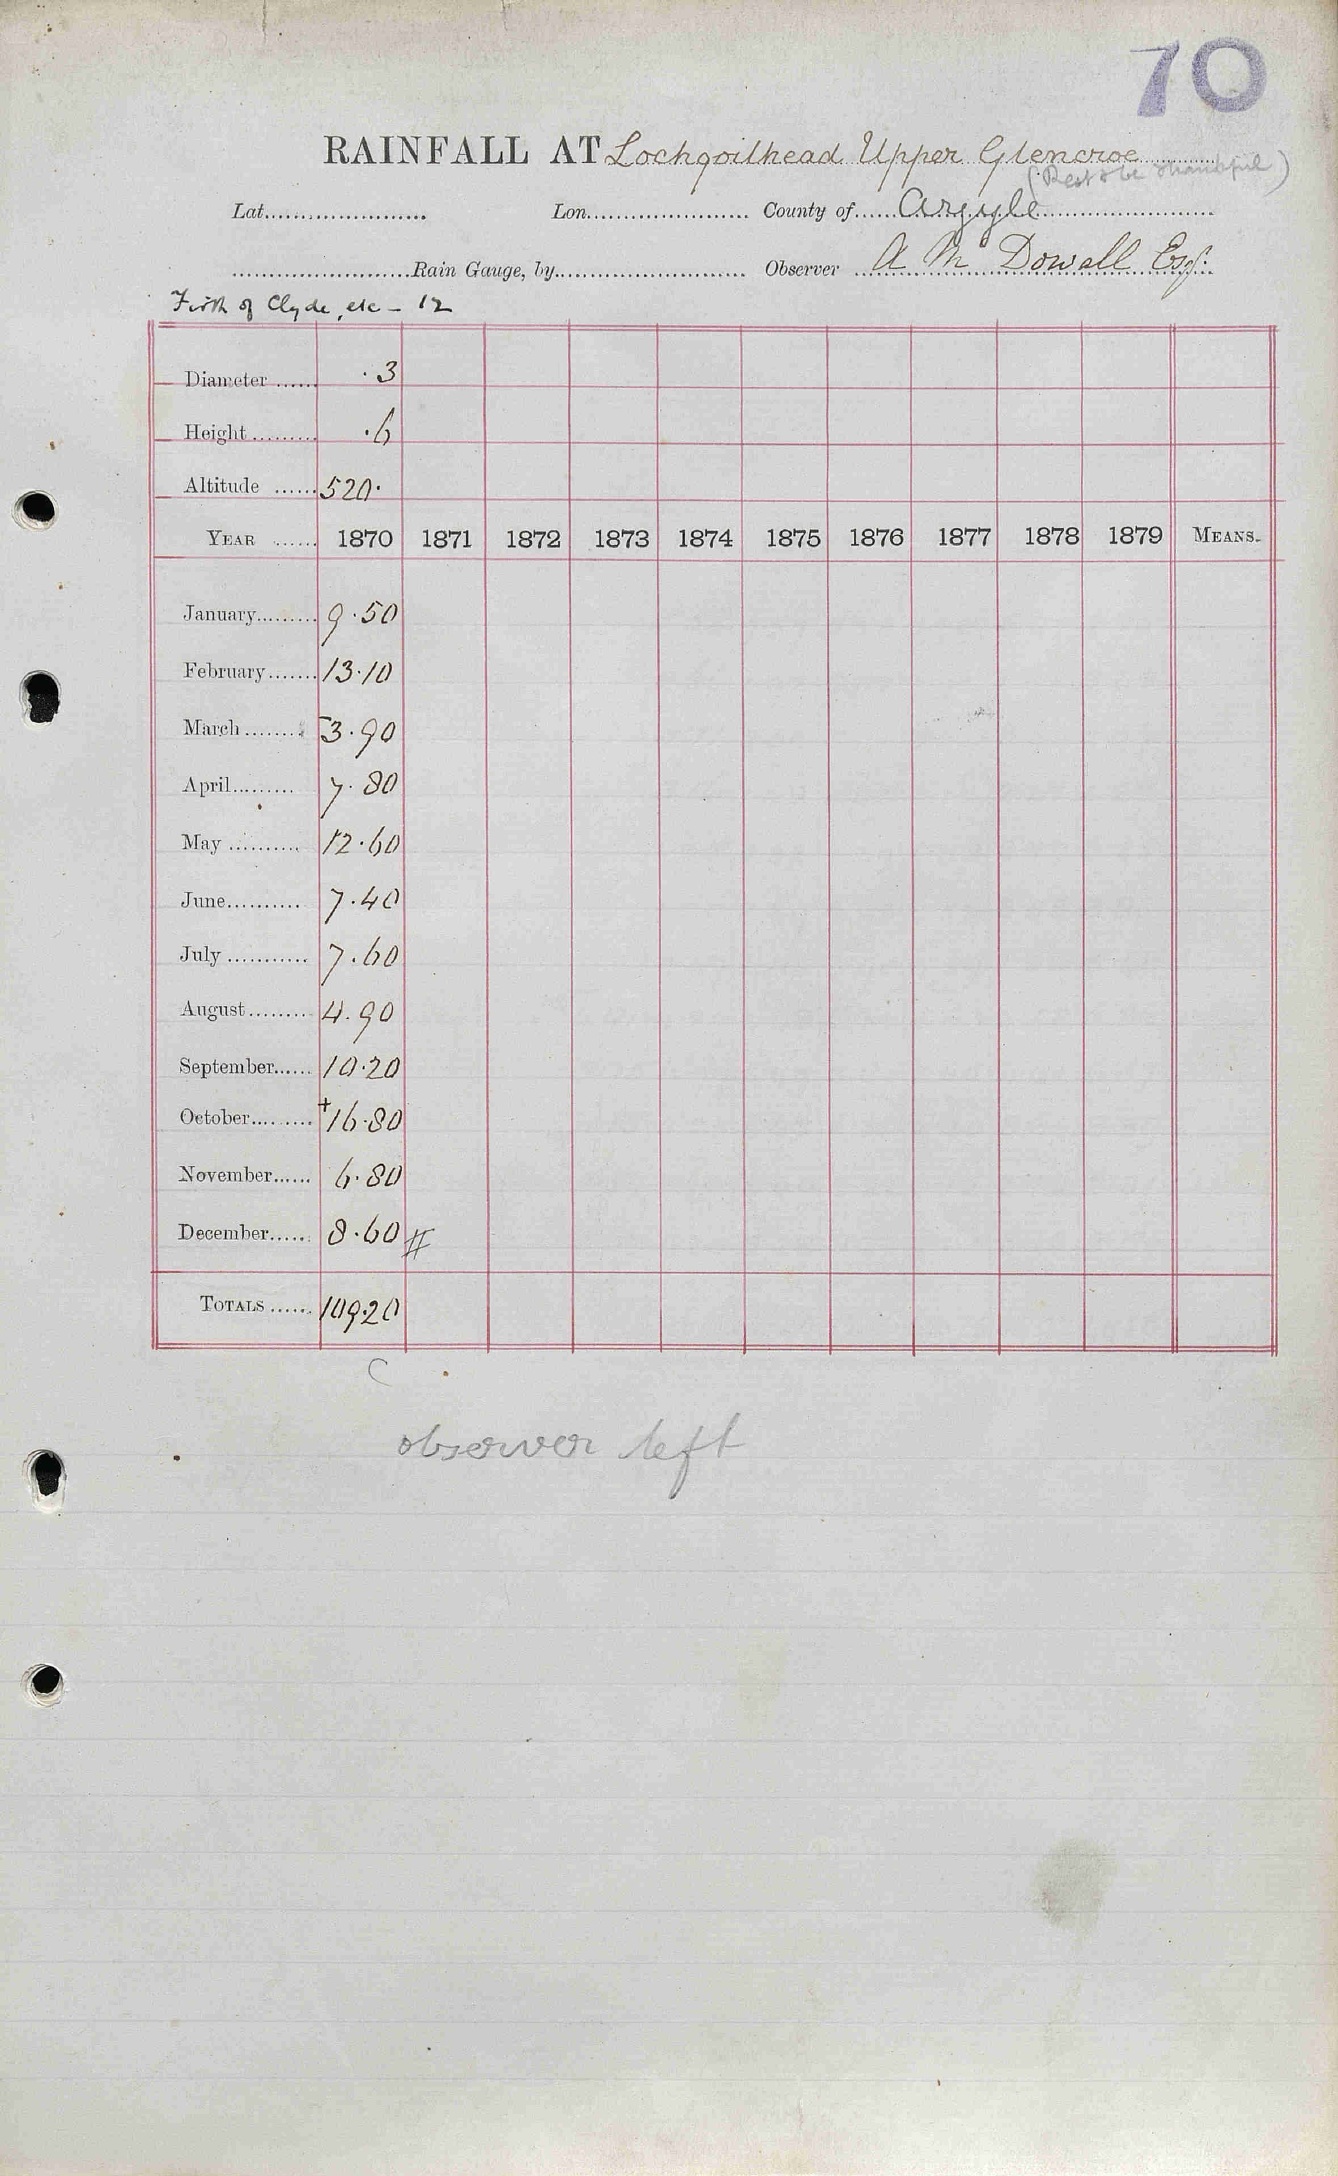 70
RAINFALL AT Lochgoilhead Upper Glencroe
(Rest & be thankful)
Lat...................... Lon...................... County of...... Argyle
........................Rain Gauge, by.......................... Observer A Mc Dowall Esq.
Firth of Clyde, etc - 12
Diameter ...... .3
Height......... .6
Altitude ...... 520.
YEAR ...... 1870 1871 1872 1873 1874 1875 1876 1877 1878 1879 MEANS.
January......... 9.50
February....... 13.10
March ........ -3.90
April......... 7.80
May .......... 12.60
June.......... 7.40
July ........... 7.60
August......... 4.90
September...... 10.20
October......... +16.80
November...... 6.80
December...... 8.60 #
TOTALS ...... 109.20
C
observer left